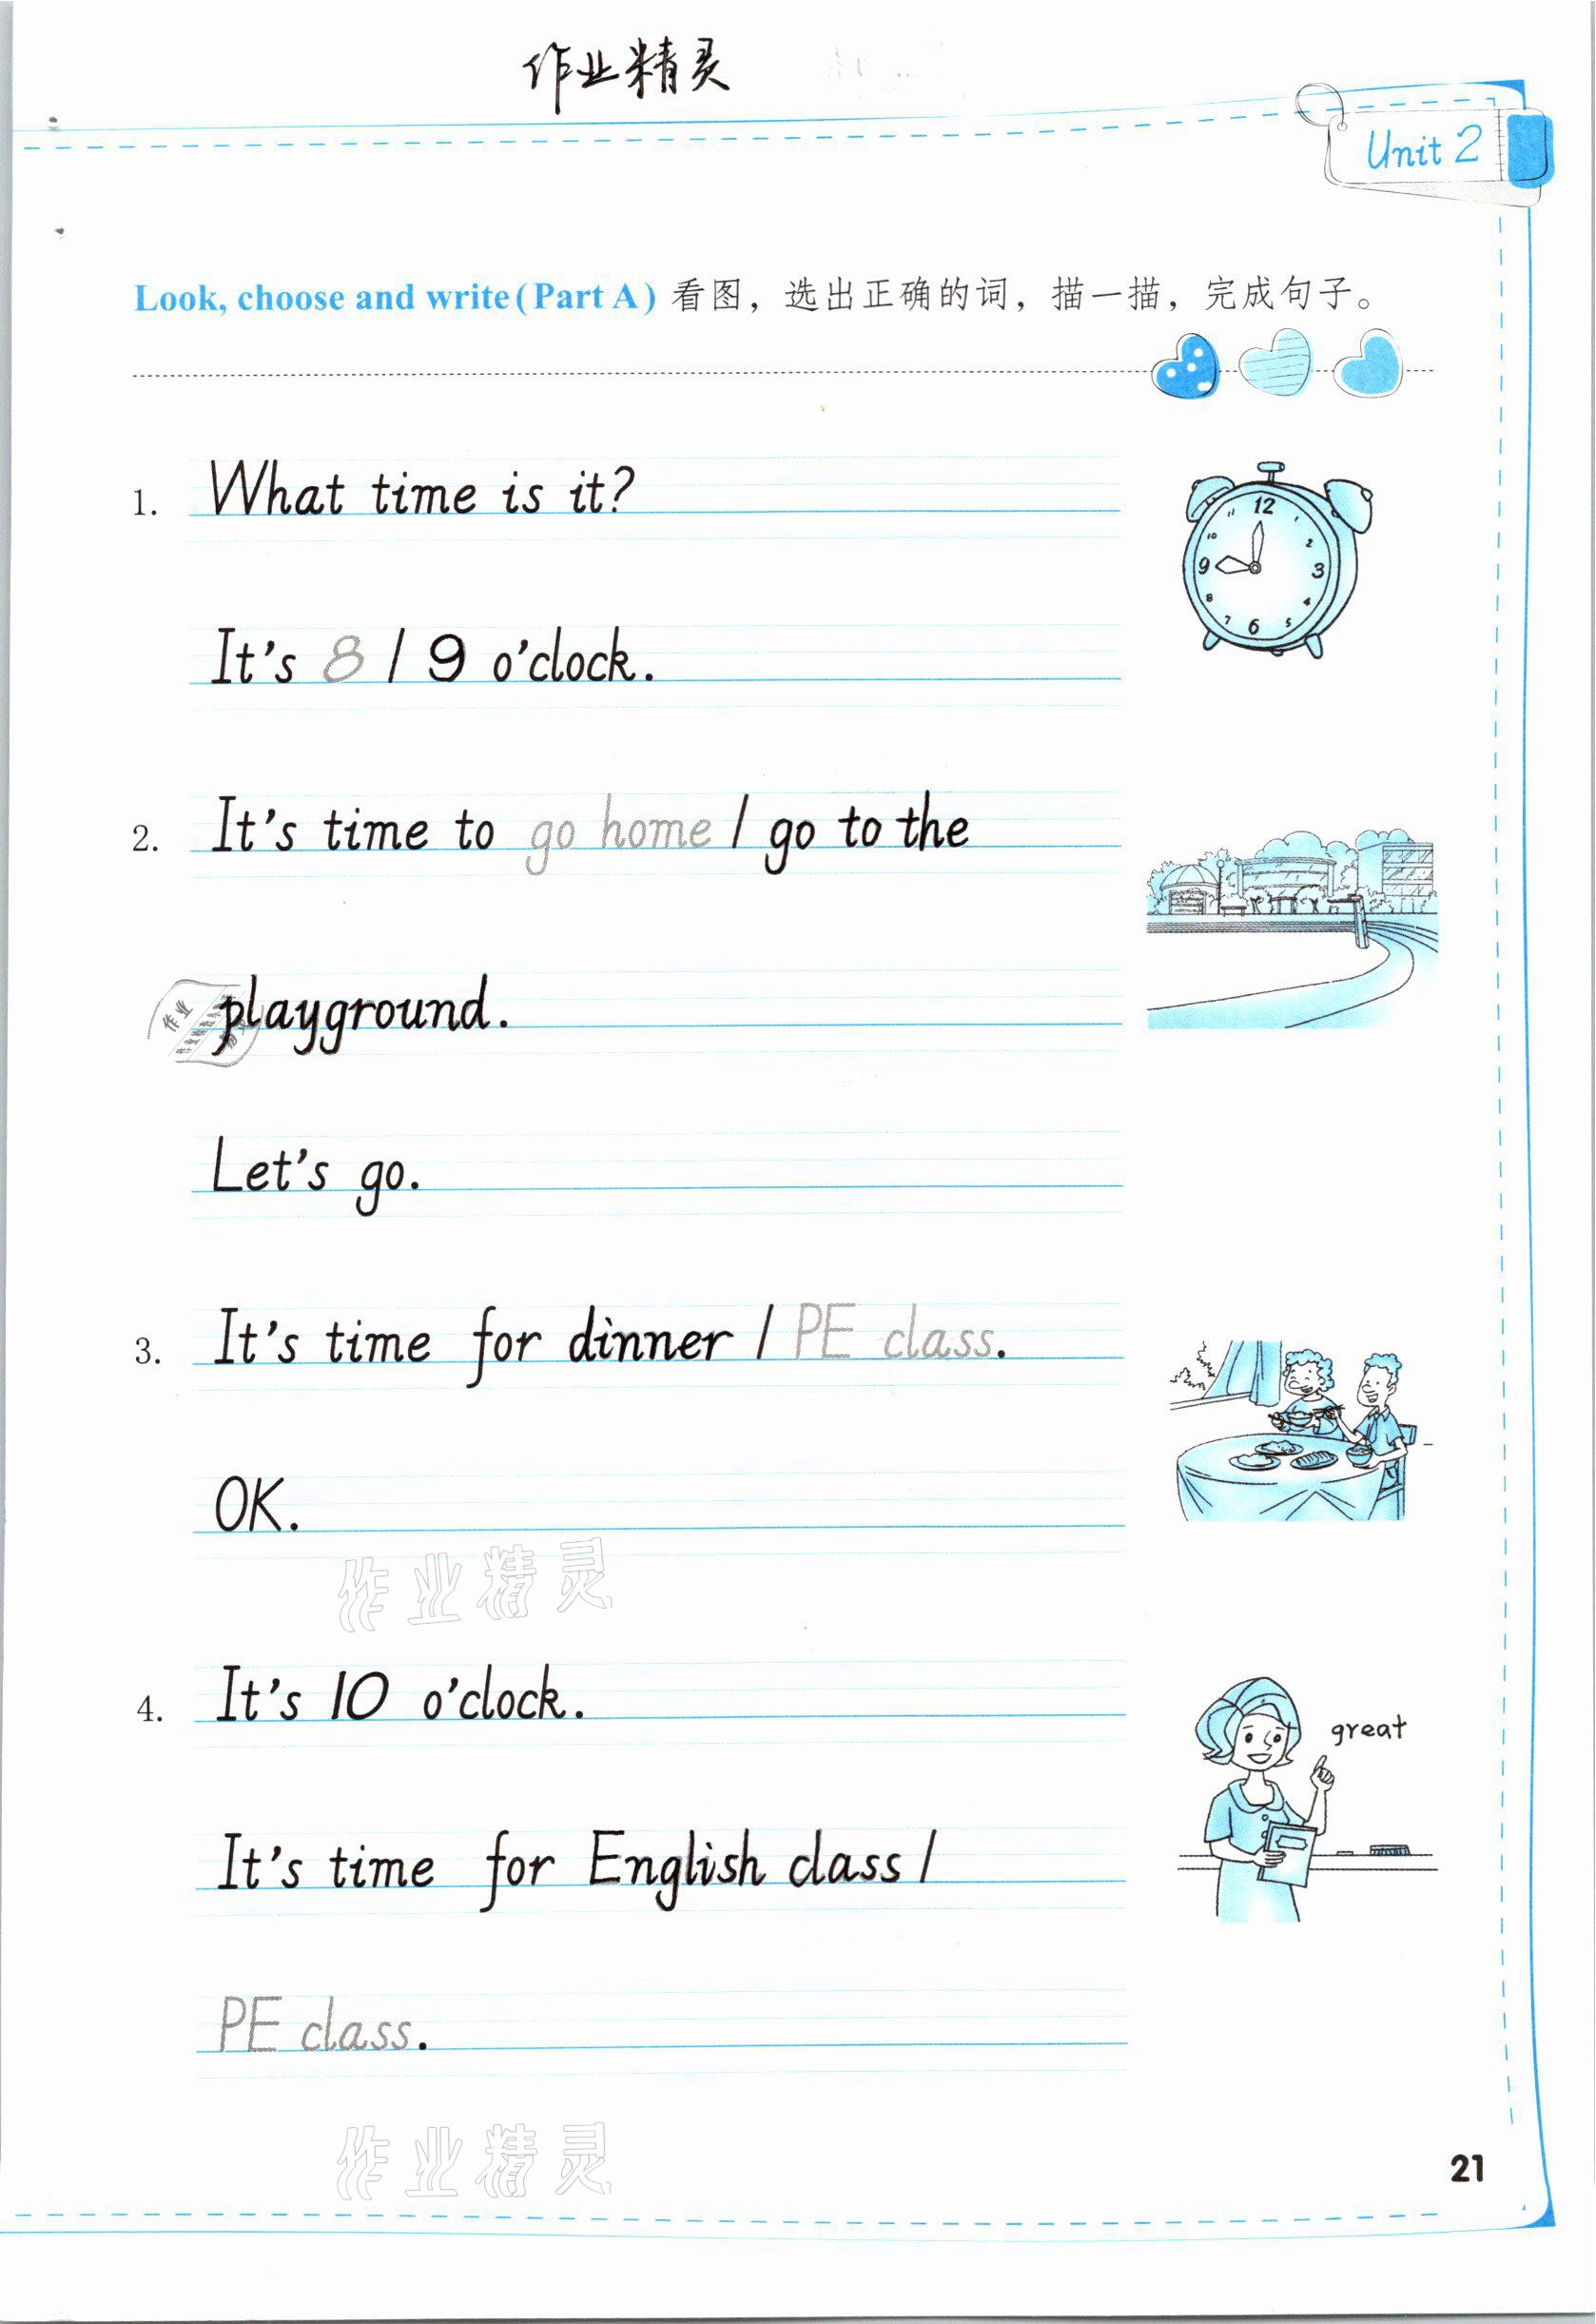 作业精灵
Unit 2
Look, choose and write (Part A) 看图，选出正确的词，描一描，完成句子。
1. What time is it?
12
10 2
9 3
8 4
7 6 5
It's 8 / 9 o'clock.
2. It's time to go home / go to the
作业
playground.
Let's go.
3. It's time for dinner / PE class.
OK.
作业精灵
4. It's 10 o'clock.
great
It's time for English class /
PE class.
作业精灵
21